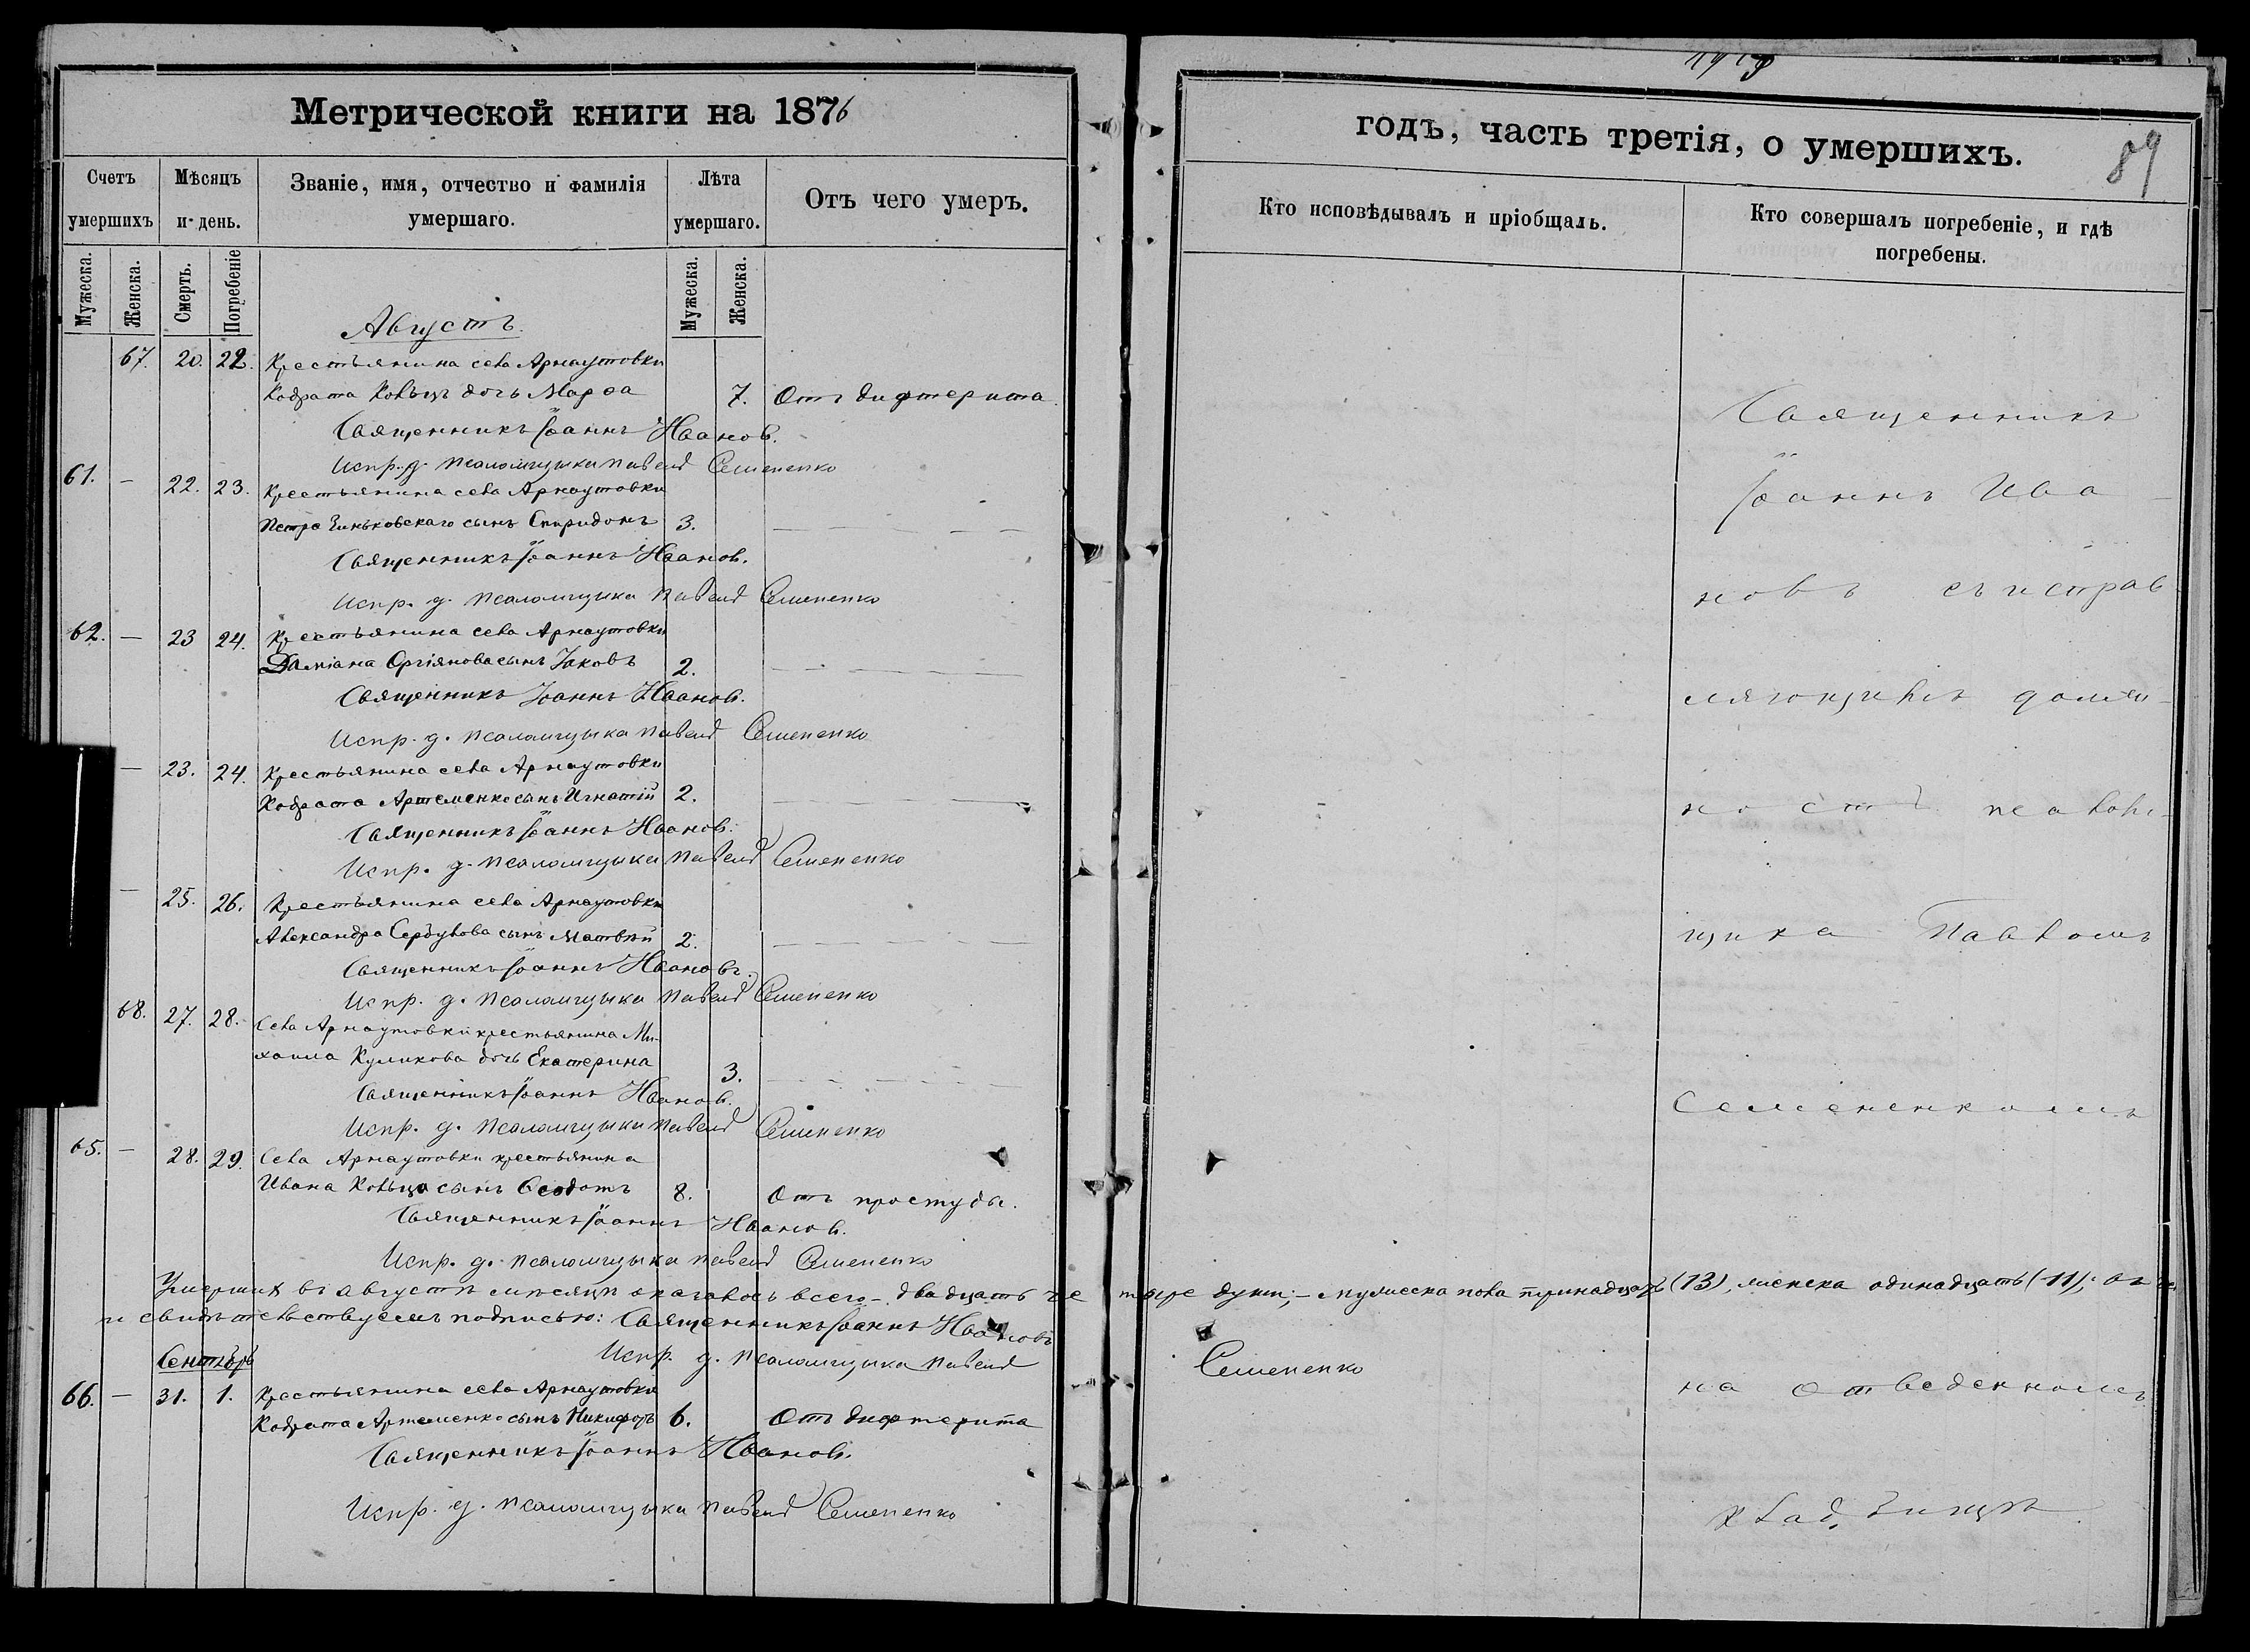 Метрической книги на 1876
Счетъ умершихъ
Мѣсяцъ и день.
Званіе, имя, отчество и фамилія умершаго.
Лѣта умершаго.
Отъ чего умеръ.
Мужеска. Женска. Смерть. Погребеніе Мужеска. Женска.
Августъ.
67. 20. 22. Крестьянина села Арнаутовки
Кодрата Кольцъ дочь Марѳа 7. Отъ дифтерита
Священникъ Іоаннъ Иванов.
Испр. д. псаломщика Павелъ Семененко
61. — 22. 23. Крестьянина села Арнаутовки
Петра Зиньковскаго сынъ Спиридонъ 3. — — —
Священникъ Іоаннъ Иванов.
Испр. д. псаломщика Павелъ Семененко
62. — 23 24. Крестьянина села Арнаутовки
Даміана Оргіянова сынъ Іаковъ 2. — — —
Священникъ Іоаннъ Иванов.
Испр. д. псаломщика Павелъ Семененко
— 23. 24. Крестьянина села Арнаутовки
Кодрата Артеменко сынъ Игнатій 2. — — —
Священникъ Іоаннъ Иванов.
Испр. д. псаломщика Павелъ Семененко
— 25. 26. Крестьянина села Арнаутовки
Александра Сербулова сынъ Матвѣй 2. — — —
Священникъ Іоаннъ Ивановъ.
Испр. д. псаломщика Павелъ Семененко
68. 27. 28. Села Арнаутовки крестьянина Ми-
хаила Куликова дочь Екатерина 3. — — —
Священникъ Іоаннъ Иванов.
Испр. д. псаломщика Павелъ Семененко
65. — 28. 29. Села Арнаутовки крестьянина
Ивана Кольца сынъ Ѳеодотъ 8. Отъ простуды.
Священникъ Іоаннъ Иванов.
Испр. д. псаломщика Павелъ Семененко
Умерших въ августѣ мѣсяцѣ оказалось всего — двадцать че тыре души; — мужеска пола тринадцать (13), женска одинадцать (11); въ чем
и свидѣтельствуемъ подписью: Священникъ Іоаннъ Ивановъ
Испр. д. псаломщика Павелъ Семененко
Сентябрь
66. — 31. 1. Крестьянина села Арнаутовки
Кодрата Артеменко сынъ Никифоръ 6. Отъ дифтерита
Священникъ Іоаннъ Иванов.
Испр. д. псаломщика Павелъ Семененко
годъ, часть третія, о умершихъ.
89
Кто исповѣдывалъ и пріобщалъ.
Кто совершалъ погребеніе, и гдѣ погребены.
Священникъ
Іоаннъ Ива-
новъ съ исправ
ляющимъ долж-
ность псалом-
щика Павломъ
Семененкомъ
на отведенномъ
кладбищѣ.